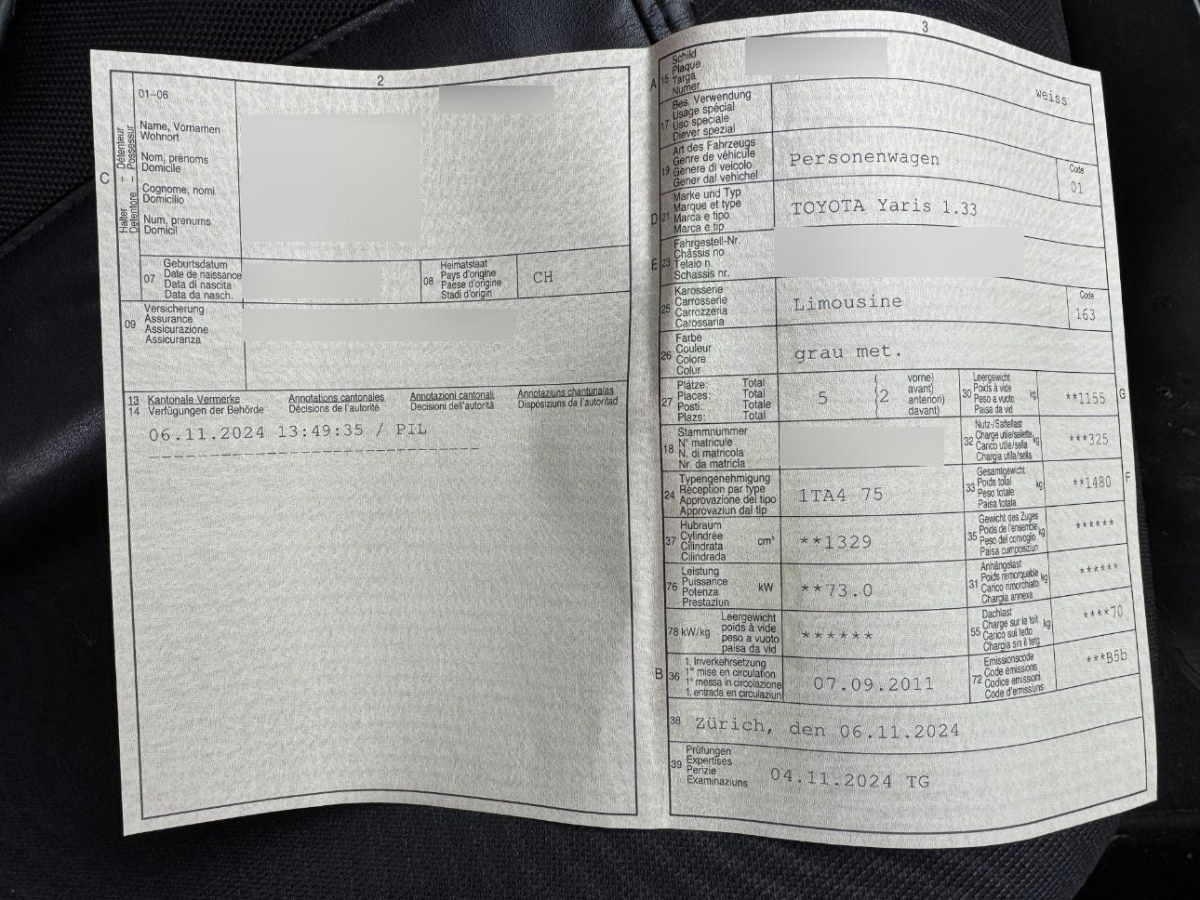 2
01–06
Name, Vornamen
Wohnort
Nom, prénoms
Domicile
Cognome, nomi
Domicilio
Num, prenums
Domicil
C
Halter – Détenteur
Detentore – Possessur
07
Geburtsdatum
Date de naissance
Data di nascita
Data da nasch.
08
Heimatstaat
Pays d'origine
Paese d'origine
Stadi d'origin
CH
09
Versicherung
Assurance
Assicurazione
Assicuranza
13 Kantonale Vermerke Annotations cantonales Annotazioni cantonali Annotaziuns chantunalas
14 Verfügungen der Behörde Décisions de l'autorité Decisioni dell'autorità Disposiziuns da l'autoritad
06.11.2024 13:49:35 / PIL
3
A 15
Schild
Plaque
Targa
Numer
weiss
17
Bes. Verwendung
Usage spécial
Uso speciale
Diever spezial
19
Art des Fahrzeugs
Genre de véhicule
Genere di veicolo
Gener dal vehichel
Personenwagen
Code
01
D 21
Marke und Typ
Marque et type
Marca e tipo
Marca e tip
TOYOTA Yaris 1.33
E 23
Fahrgestell-Nr.
Châssis no
Telaio n.
Schassis nr.
25
Karosserie
Carrosserie
Carrozzeria
Carossaria
Limousine
Code
163
26
Farbe
Couleur
Colore
Colur
grau met.
27
Plätze: Total
Places: Total
Posti: Totale
Plazs: Total
5
2
vorne)
avant)
anteriori)
davant)
30
Leergewicht
Poids à vide
Peso a vuoto
Paisa da vid
kg
**1155
G
18
Stammnummer
N° matricule
N. di matricola
Nr. da matricla
32
Nutz-/Sattellast
Charge utile/sellette
Carico utile/sella
Chargia utila/sella
kg
***325
24
Typengenehmigung
Réception par type
Approvazione del tipo
Approvaziun dal tip
1TA4 75
33
Gesamtgewicht
Poids total
Peso totale
Paisa totala
kg
**1480
F
37
Hubraum
Cylindrée
Cilindrata
Cilindrada
cm³
**1329
35
Gewicht des Zuges
Poids de l'ensemble
Peso del convoglio
Paisa cumposiziun
kg
******
76
Leistung
Puissance
Potenza
Prestaziun
kW
**73.0
31
Anhängelast
Poids remorquable
Carico rimorchiato
Chargia annexa
kg
******
78 kW/kg
Leergewicht
poids à vide
peso a vuoto
paisa da vid
******
55
Dachlast
Charge sur le toit
Carico sul tetto
Chargia sin il tetg
kg
****70
B 36
1. Inverkehrsetzung
1re mise en circulation
1a messa in circolazione
1. entrada en circulaziun
07.09.2011
72
Emissionscode
Code émissions
Codice emissioni
Code d'emissiuns
***B5b
38
Zürich, den 06.11.2024
39
Prüfungen
Expertises
Perizie
Examinaziuns
04.11.2024 TG